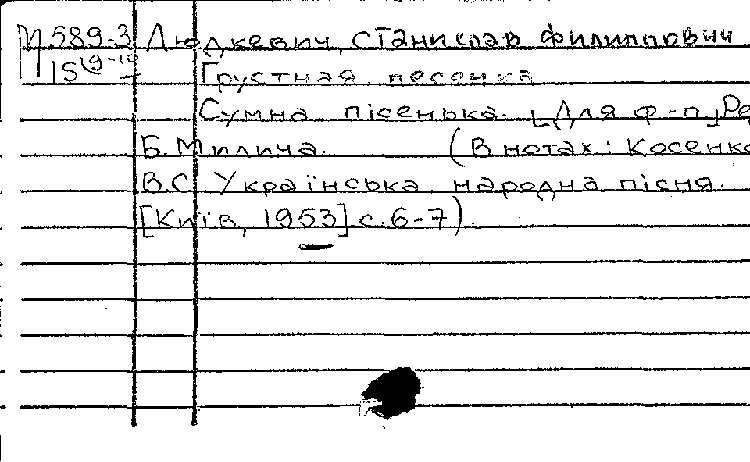 М 589-3 Людкевич, Станислав Филиппович
15 Грустная песенка
Сумна пісенька. [Для ф-п.] Ре
Б. Милича. (В нотах: Косенко
В.С. Українська народна пісня.
[Київ, 1953] с. 6-7).